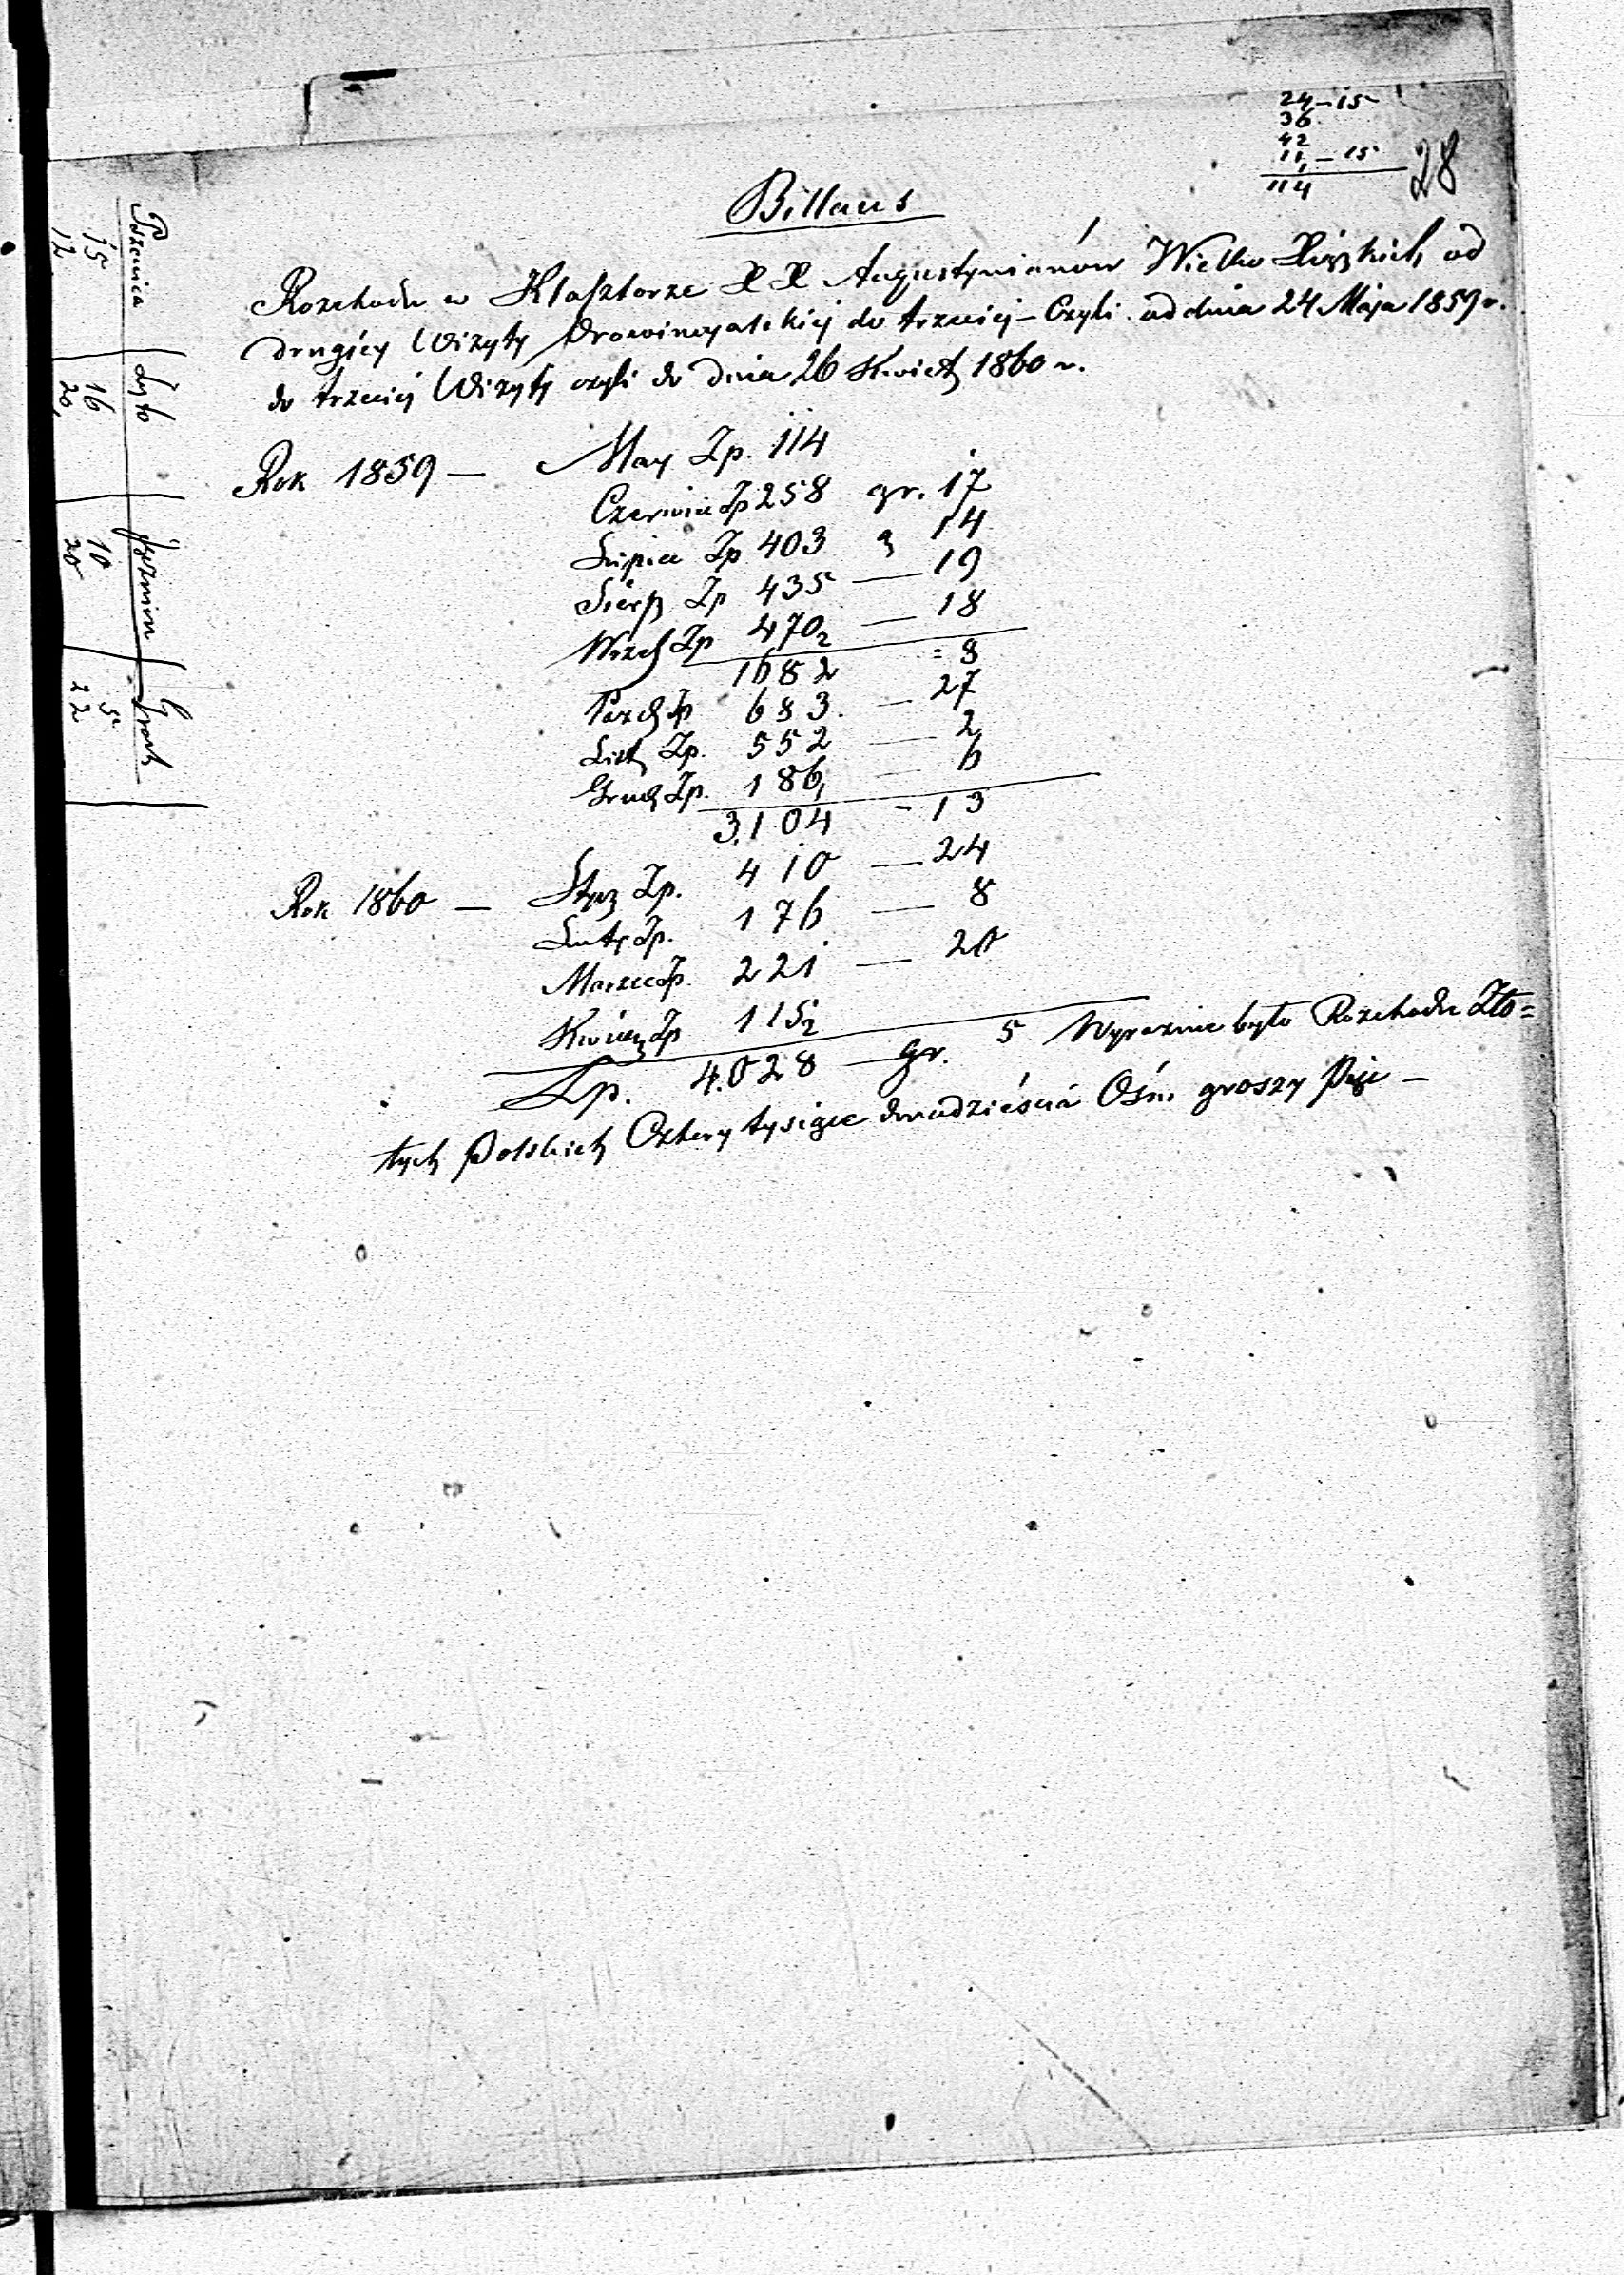 24 – 15
36
42
11, – 15
114
28
Billans
Rozchodu w Klasztorze XX Augustynianów Wielko Xiązkich, od
drugiéy Wizyty Prowincyalskiéj do trzeciéj – Czyli od dnia 24 Maja 1859 r.
do trzeciéj Wizyty czyli do dnia 26 Kwiet 1860 r.
Rok 1859 — May Zp. 114
Czerwiec Zp 258 gr. 17
Lipiec Zp 403 14
Sierp Zp 435 — 19
Wrześ Zp 470 — 18
1682 = 8
Paźd Zp 683. — 27
List Zp. 552 — 2
Grud Zp. 186, — 6
3.104 – 13
Rok 1860 — Stycz Zp. 410 — 24
Luty Zp. 176 — 8
Marzec Zp. 221 — 20
Kwiec Zp 115
Zp. 4.028 — gr. 5 Wyraznie było Rozchodu Zło=
tych Polskich Cztery tysiące dwadzieścia Ośm groszy Pięć —
Pszenica | Żyto | Jęczmien | Groch
15 | 16 | 10 | 5
12 | 20, | 20 | 22